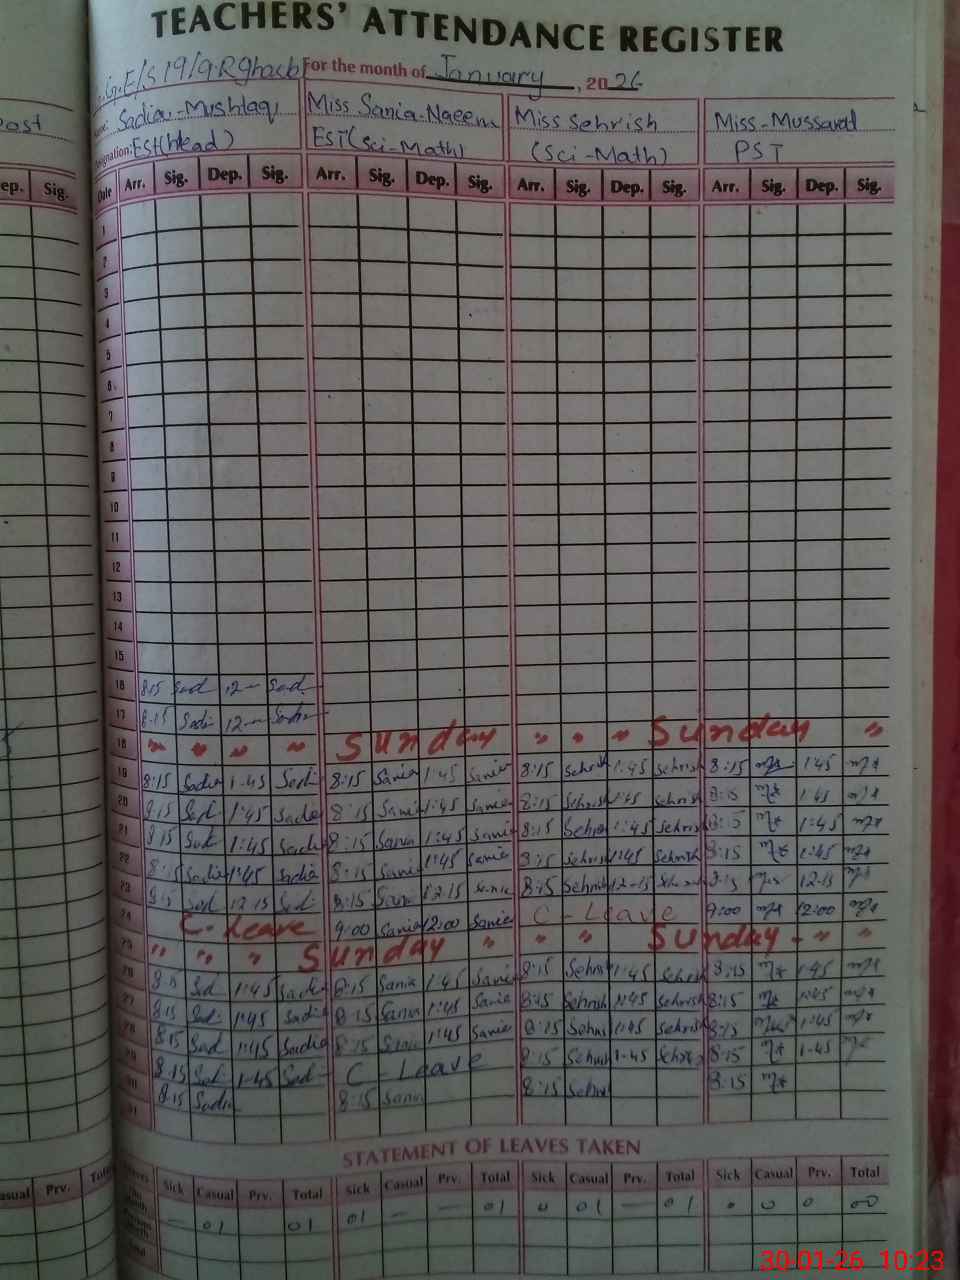 TEACHERS' ATTENDANCE REGISTER
For the month of January, 2026
Sadia-Mushtaq Miss Sania-Naeem Miss Sehrish Miss-Mussarat
Designation: EST(Head) EST(Sci-Math) (Sci-Math) PST
ep. Sig. Date Arr. Sig. Dep. Sig. Arr. Sig. Dep. Sig. Arr. Sig. Dep. Sig. Arr. Sig. Dep. Sig.
1
2
3
4
5
6
7
8
9
10
11
12
13
14
15
16 8:15 Sad 12- Sad
17 8:15 Sadi 12-
18 " " " " Sunday " " " Sunday "
19 8:15 Sadia 1-45 Sadi 8:15 Sania 1:45 Sania 8:15 Sehrish 1:45 Sehrish 8:15 1:45
20 8:15 1:45 Sadia 8:15 Sani 1:45 Sania 8:15 Sehrish 1:45 Sehrish 8:15 1:45
21 8:15 1:45 Sadia 8:15 Sania 1:45 Sani 8:15 Sehris 1:45 Sehrish 8:15 1:45
22 8:15 Sadia 1:45 Sadia 8:15 Sani 1:45 Sania 8:15 Sehrish 1:45 Sehrish 8:15 1:45
23 Sad 12:15 Sadi 8:15 Sani 12:15 Sania 8:15 Sehrish 12-15 8:15 12-15
24 C-Leave 9:00 Sania 12:00 Sania C-Leave 9:00 12:00
25 " " " Sunday " " " Sunday - " "
26 8:15 Sad 1:45 Sadia 8:15 Sania 1:45 Sania 8:15 Sehrish 1:45 Sehrish 8:15 1:45
27 8:15 Sadi 1:45 Sadia 8:15 Sania 1:45 Sania 8:15 Sehrish 1:45 Sehrish 8:15 1:45
28 8:15 Sad 1:45 Sadia 8:15 Sania 1:45 Sania 8:15 Sehris 1:45 Sehrish 8:15 1:45
29 8:15 Sadi 1-45 Sad C-Leave 8:15 Sehrish 1-45 8:15 1-45
30 8:15 Sadia 8:15 Sania 8:15 Sehris 8:15
31
STATEMENT OF LEAVES TAKEN
asual Prv. Tot Leaves Sick Casual Prv. Total Sick Casual Prv. Total Sick Casual Prv. Total Sick Casual Prv. Total
- 01 01 01 - - 01 0 01 - 01 0 0 0 00
30-01-26 10:23